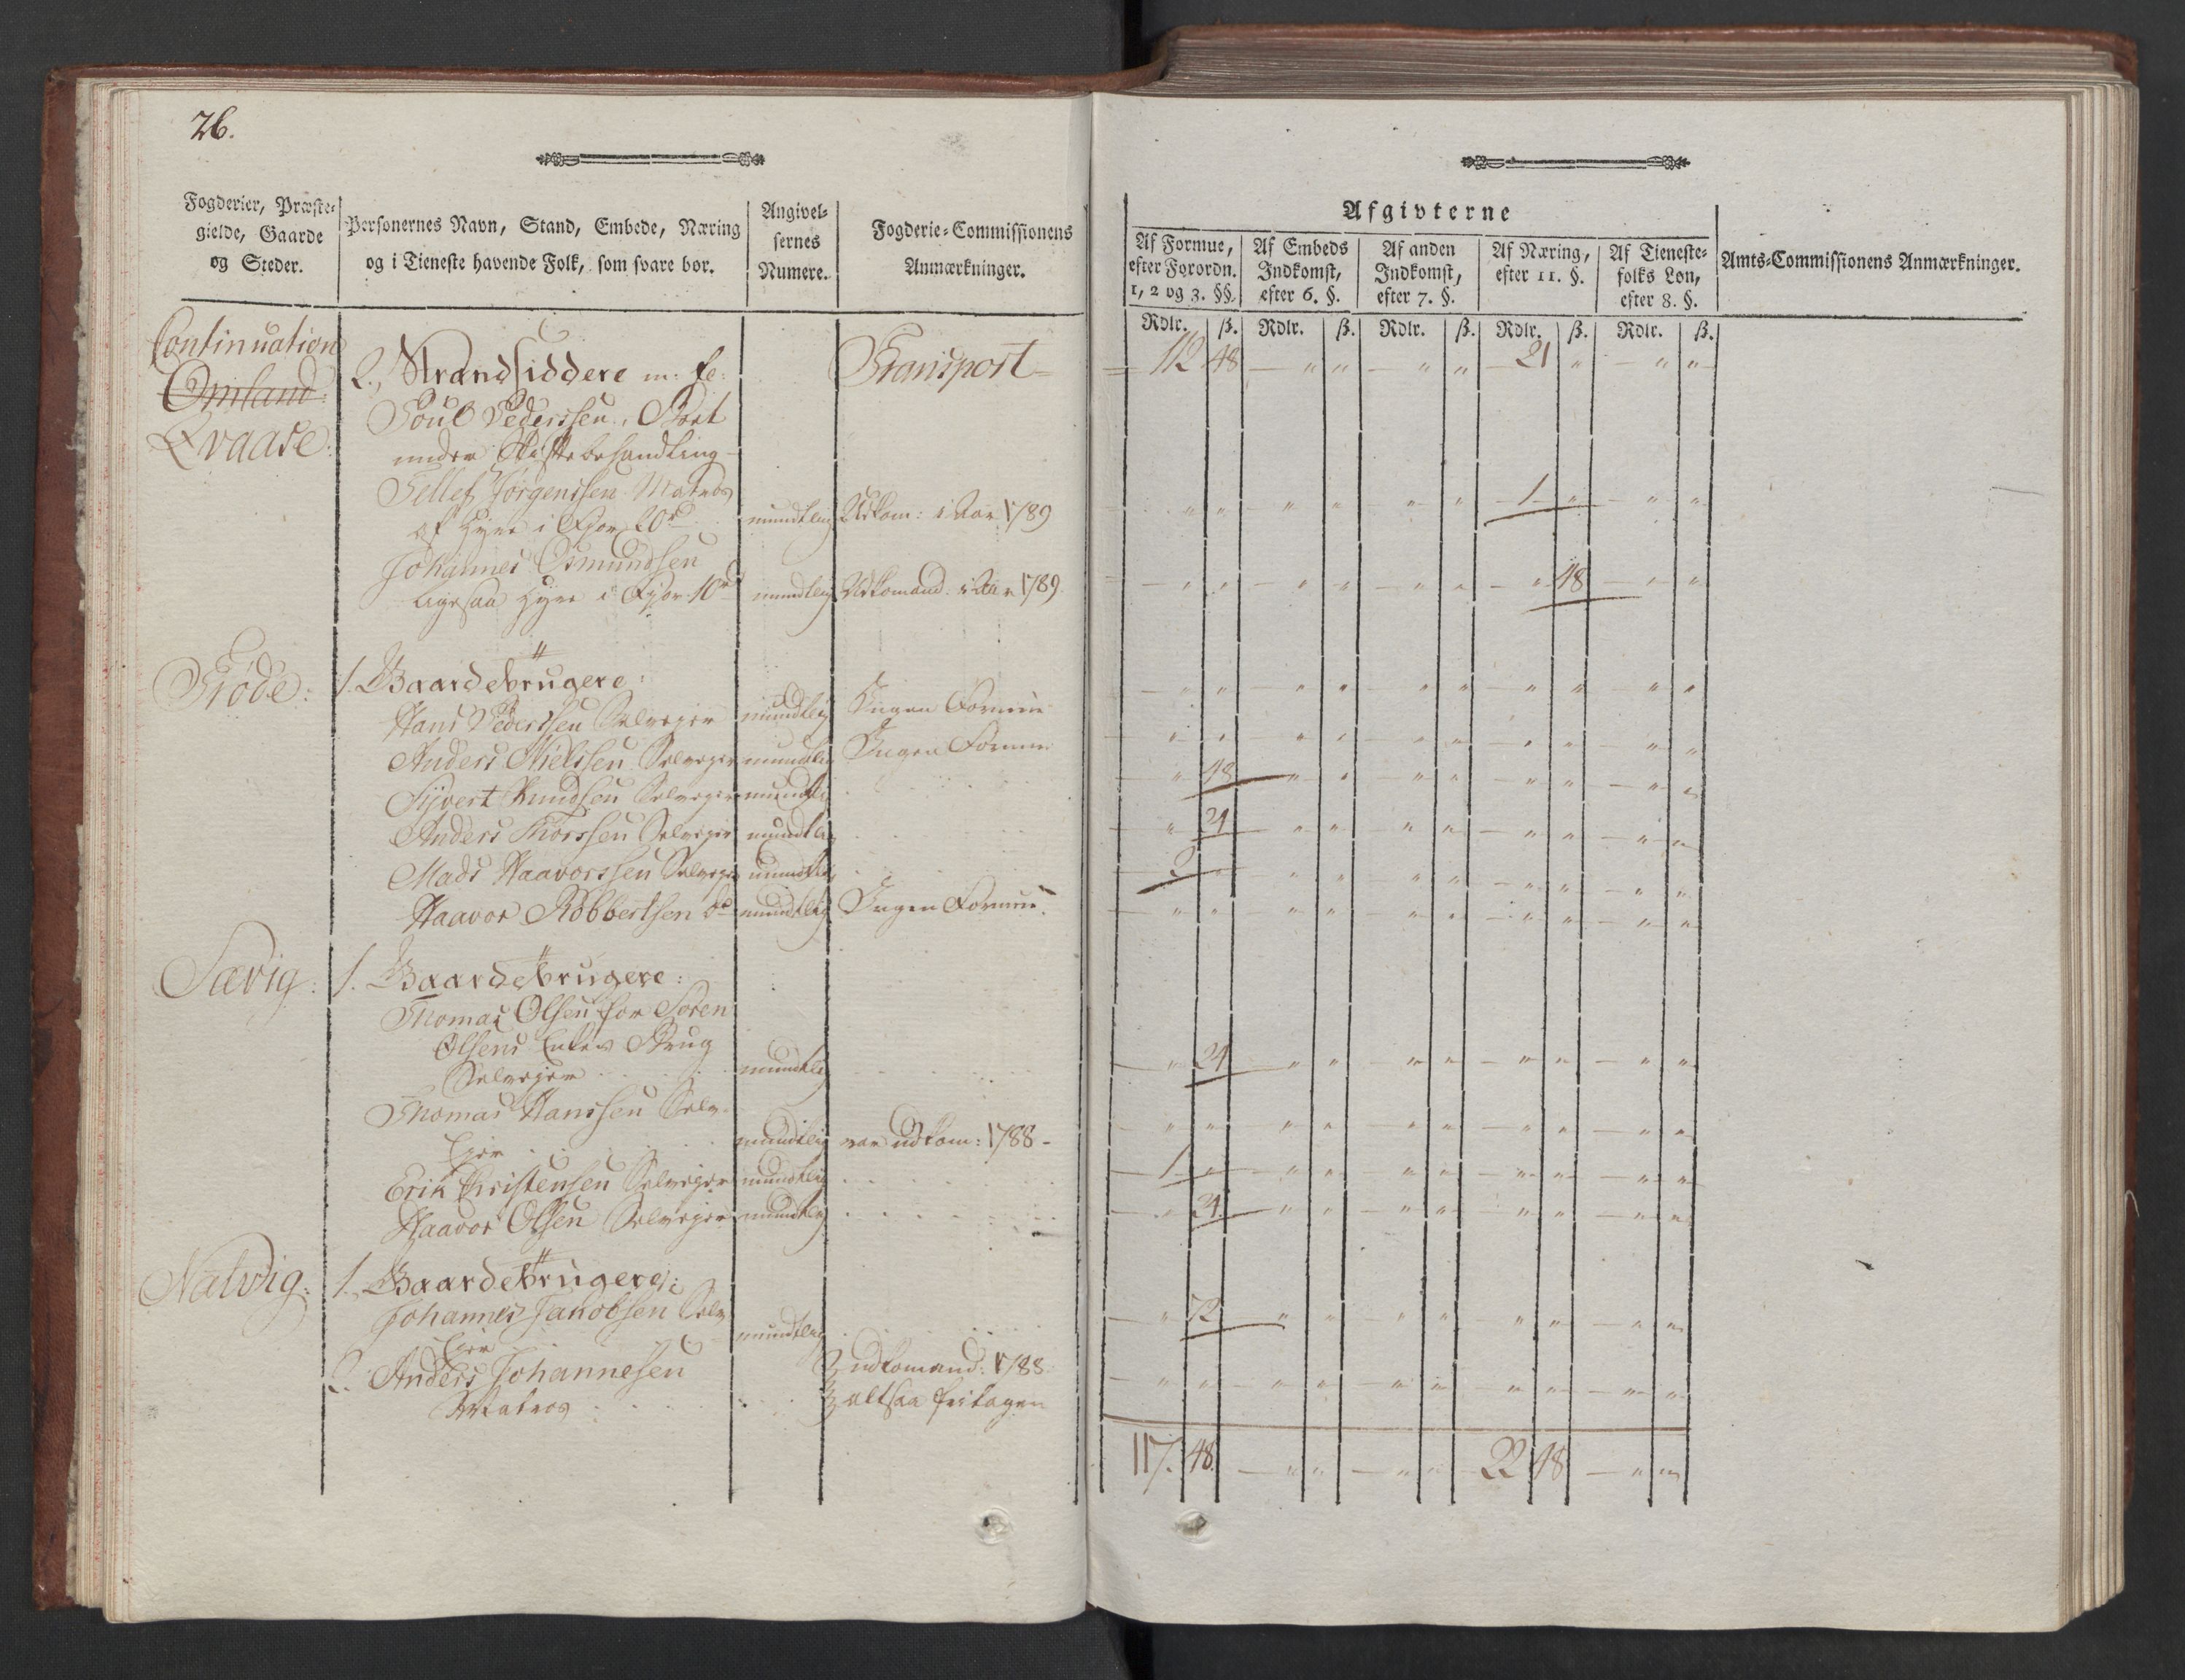 26.
Fogderier, Præste-
gielde, Gaarde
og Steder.
Personernes Navn, Stand, Embede, Næring
og i Tieneste havende Folk, som svare bør.
Angivel-
sernes
Numere.
Fogderie-Commissionens
Anmærkninger.
Afgivterne
Af Formue,
efter Forordn.
1, 2 og 3. §§.
Af Embeds
Indkomst,
efter 6. §.
Af anden
Indkomst,
efter 7. §.
Af Næring,
efter 11. §.
Af Tieneste-
folks Løn,
efter 8. §.
Amts-Commissionens Anmærkninger.
Rdlr. ß. Rdlr. ß. Rdlr. ß. Rdlr. ß. Rdlr. ß.
Continuation
Omland:
Qvaase:
2., Strandsiddere m: fl: Transport 112 48 — " " — " " — 21 " — " "
Poul Pederssen,
under Skiftebehandling
Tellef Jørgenssen Matros
af Hyre i Fior 20 rd mundtlig Udkom: i Aar 1789 " " — " " — " " — 1 " — " "
Johannes Osmundsen
ligesaa Hyre i Fior 10 rd mundtlig Udkomand. i Aar 1789 — " " — " " — " " — " 48 — " "
Trøde: 1. Gaardebrugere: — " " — " " — " " — " " — " "
Hans Pederssen Selveyer mundtlig Ingen Formue — " " — " " — " " — " " — " "
Anders Nielssen Selveyer mundtlig Ingen Formue
Sijvert Knudsen Selveyer mundtlig — " 48 — " " — " " — " " — " "
Anders Thorssen Selveyer mundtlig — " 24 — " " — " " — " " — " "
Mads Haavorssen Selveyer mundtlig — 2 " — " " — " " — " " — " "
Haavor Robbertsen do mundtlig Ingen Formue — " " — " " — " " — " " — " "
Sævig: 1. Gaardebrugere:
Thomas Olsen for Søren
Olsens Enkes Brug
Selveyer mundtlig — " 24 — " " — " " — " " — " "
Thomas Hanssen Selv-
Eyer mundtlig var udkom: 1788 - — " " — " " — " " — " " — " "
Erik Christensen Selveyer mundtlig — 1 " — " " — " " — " " — " "
Haavor Olsen Selveyer mundtlig — " 24 — " " — " " — " " — " "
Nalvig: 1. Gaardebrugere:
Johannes Jakobsen Selv
Eyer mundtlig — " 72 — " " — " " — " " — " "
2. Anders Johannesen udkomand: 1788
Matros altsaa fritagen — " " — " " — " " — " " — " "
117. 48. — " " — " " — 22 48 — " "